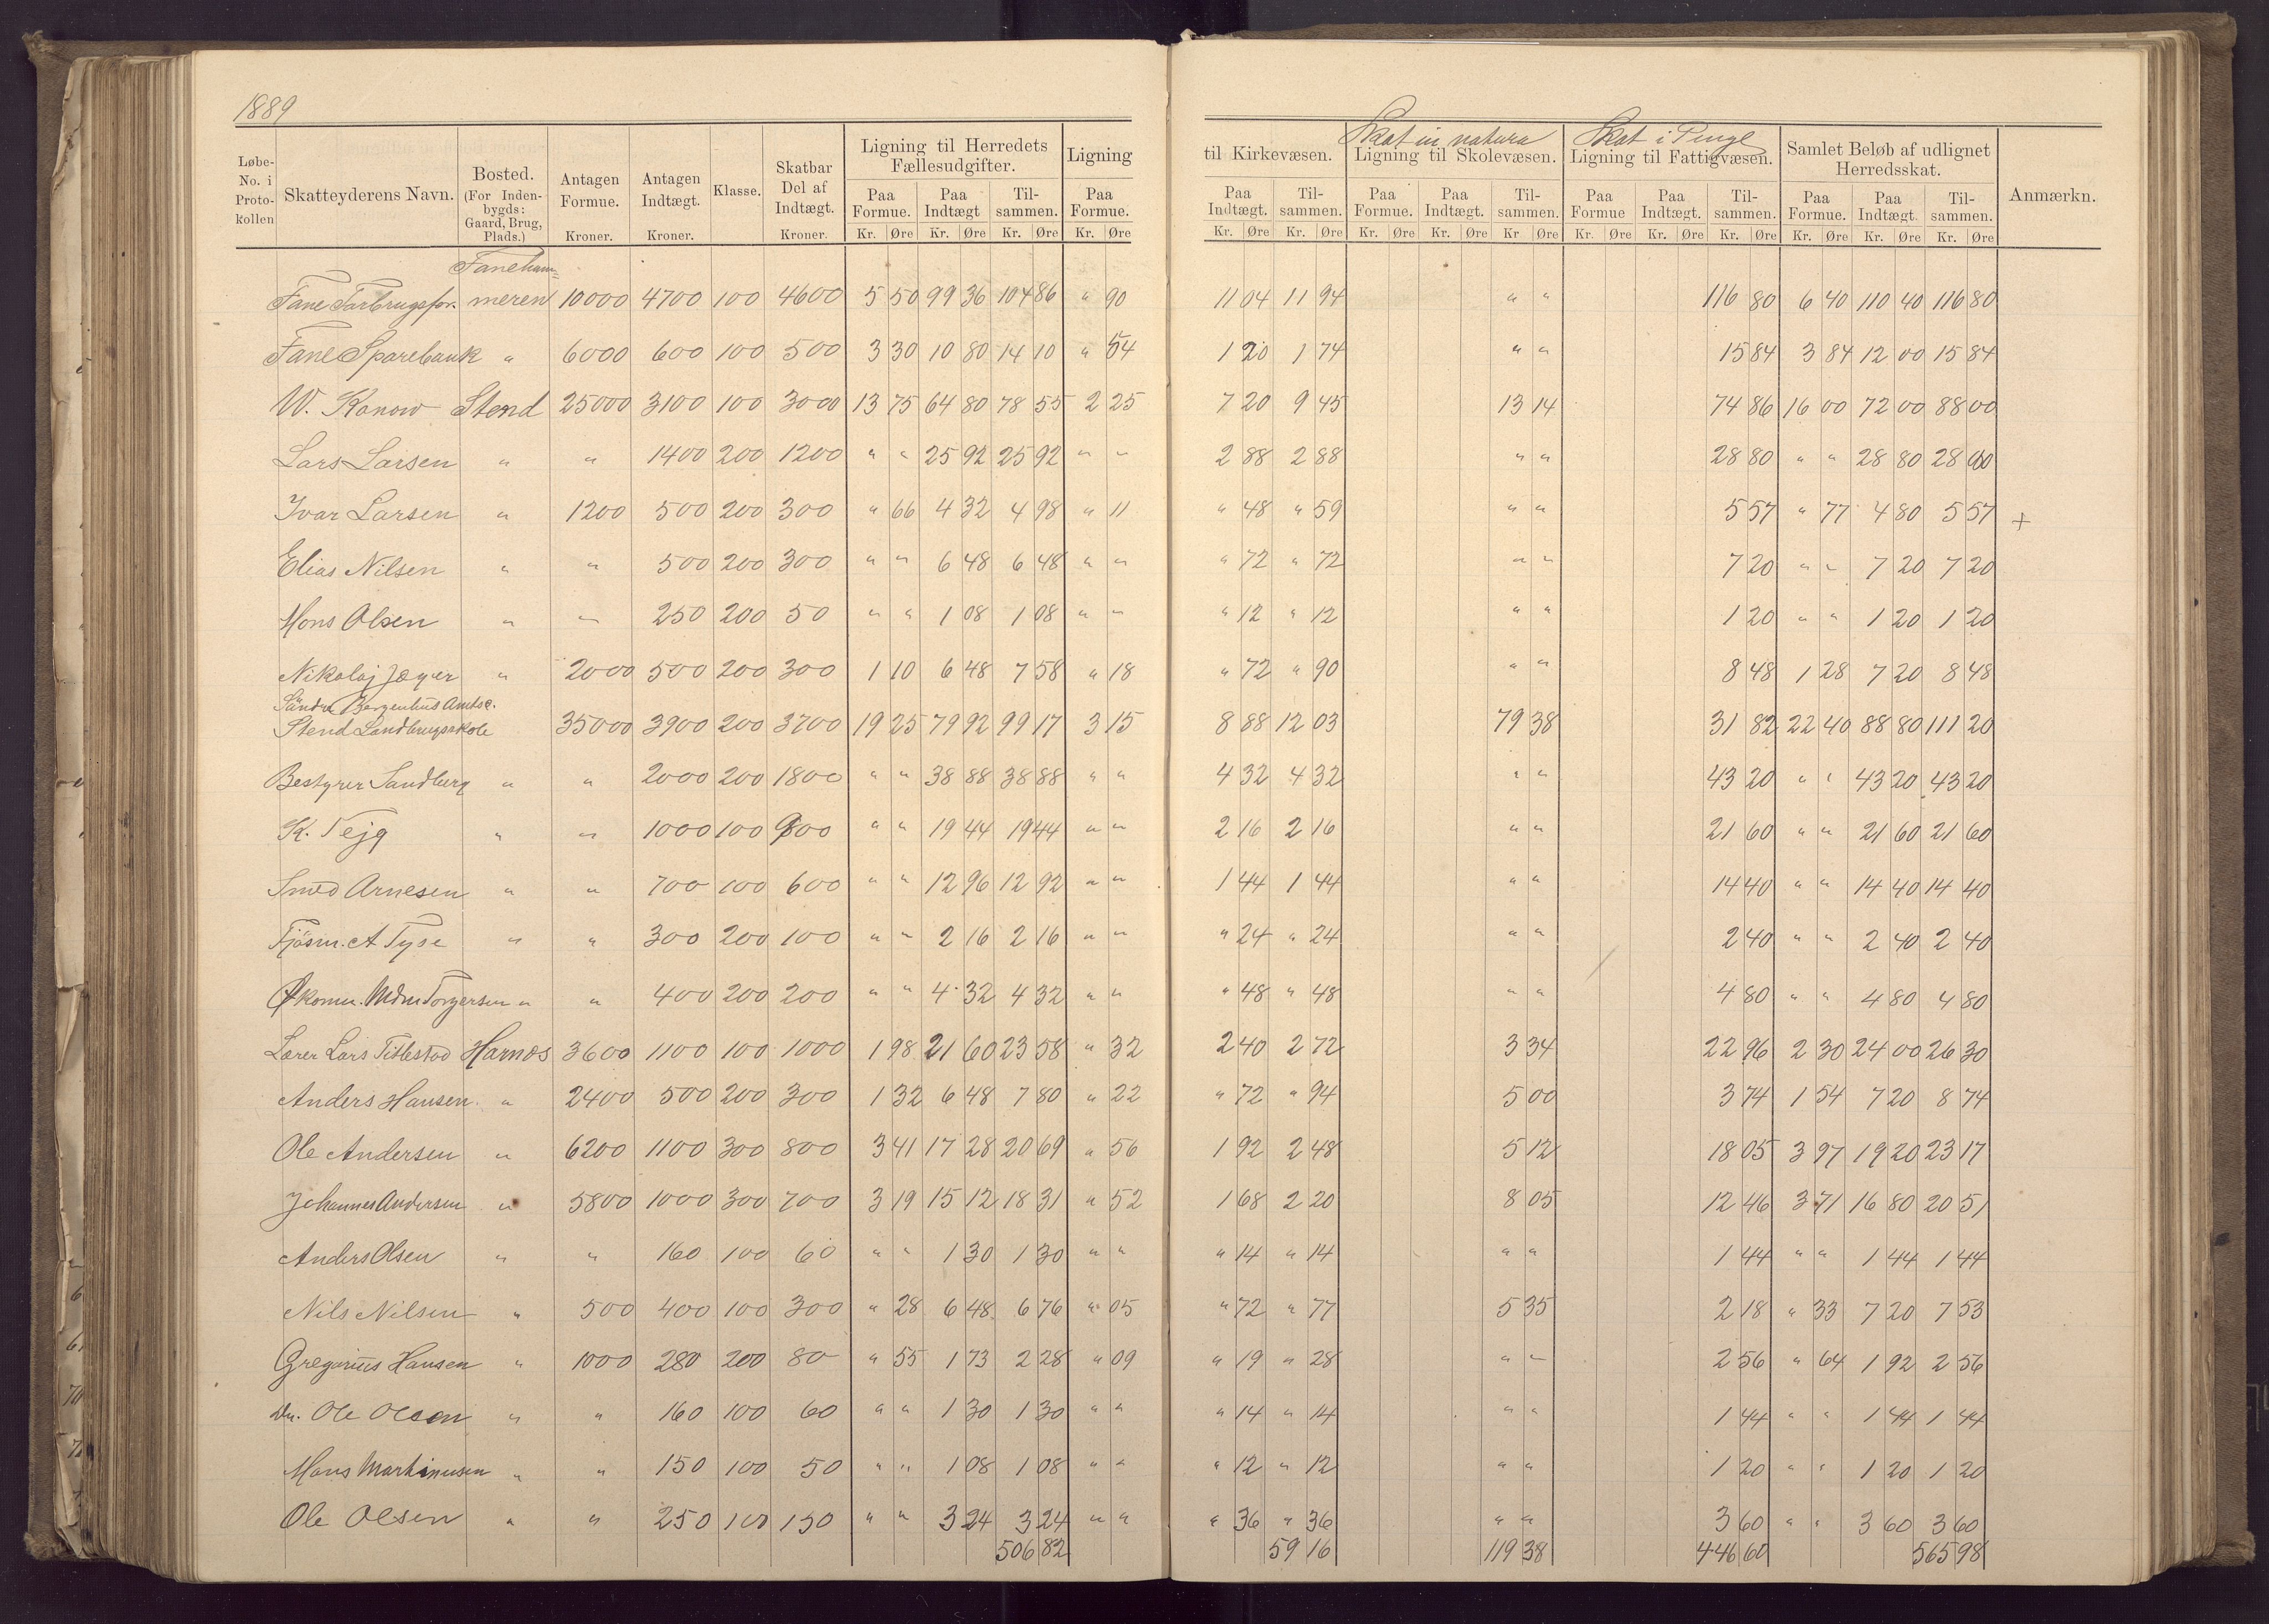 1889
Skat in natura Skat i Penge
Løbe- No. i Proto- kollen Skatteyderens Navn. Bosted. (For Inden- bygds: Gaard, Brug, Plads.) Antagen Formue. Kroner. Antagen Indtægt. Kroner. Klasse. Skatbar Del af Indtægt. Kroner. Ligning til Herredets Fællesudgifter. Ligning til Kirkevæsen. Ligning til Skolevæsen. Ligning til Fattigvæsen. Samlet Beløb af udlignet Herredsskat. Anmærkn.
Paa Formue. Paa Indtægt Til- sammen. Paa Formue. Paa Indtægt. Til- sammen. Paa Formue. Paa Indtægt. Til- sammen. Paa Formue Paa Indtægt. Til- sammen. Paa Formue. Paa Indtægt Til- sammen.
Kr. Øre Kr. Øre Kr. Øre Kr. Øre Kr. Øre Kr. Øre Kr. Øre Kr. Øre Kr Øre Kr. Øre Kr. Øre Kr. Øre Kr. Øre Kr. Øre Kr. Øre
Faneham=
Fane Forbrugsfor. meren 10000 4700 100 4600 5 50 99 36 104 86 " 90 11 04 11 94 " " 116 80 6 40 110 40 116 80
Fane Sparebank " 6000 600 100 500 3 30 10 80 14 10 " 54 1 20 1 74 " " 15 84 3 84 12 00 15 84
W. Konow Stend 25000 3100 100 3000 13 75 64 80 78 55 2 25 7 20 9 45 13 14 74 86 16 00 72 00 88 00
Lars Larsen " " 1400 200 1200 " " 25 92 25 92 " " 2 88 2 88 " " 28 80 " " 28 80 28 80
Ivar Larsen " 1200 500 200 300 " 66 4 32 4 98 " 11 " 48 " 59 " " 5 57 " 77 4 80 5 57 +
Elias Nilsen " " 500 200 300 " " 6 48 6 48 " " " 72 " 72 " " 7 20 " " 7 20 7 20
Mons Olsen " " 250 200 50 " " 1 08 1 08 " " " 12 " 12 " " 1 20 " " 1 20 1 20
Nikolaj Jæger " 2000 500 200 300 1 10 6 48 7 58 " 18 " 72 " 90 " " 8 48 1 28 7 20 8 48
Søndre Bergenhus Amtsc.
Stend Landbrugsskole 35000 3900 200 3700 19 25 79 92 99 17 3 15 8 88 12 03 79 38 31 82 22 40 88 80 111 20
Bestyrer Sandberg " " 2000 200 1800 " " 38 88 38 88 " " 4 32 4 32 " " 43 20 " " 43 20 43 20
K. Tejg " " 1000 100 900 " " 19 44 19 44 " " 2 16 2 16 " " 21 60 " " 21 60 21 60
Smed Arnesen " " 700 100 600 " " 12 96 12 92 " " 1 44 1 44 " " 14 40 " " 14 40 14 40
Fjösm. A Tyse " " 300 200 100 " " 2 16 2 16 " " " 24 " 24 " " 2 40 " " 2 40 2 40
Økonm. Mdm Torgersen " " 400 200 200 " " 4 32 4 32 " " " 48 " 48 " " 4 80 " " 4 80 4 80
Lærer Lars Titlestad Hamæs 3600 1100 100 1000 1 98 21 60 23 58 " 32 2 40 2 72 3 34 22 96 2 30 24 00 26 30
Anders Hansen " 2400 500 200 300 1 32 6 48 7 80 " 22 " 72 " 94 5 00 3 74 1 54 7 20 8 74
Ole Andersen " 6200 1100 300 800 3 41 17 28 20 69 " 56 1 92 2 48 5 12 18 05 3 97 19 20 23 17
Johannes Andersen " 5800 1000 300 700 3 19 15 12 18 31 " 52 1 68 2 20 8 05 12 46 3 71 16 80 20 51
Anders Olsen " " 160 100 60 " " 1 30 1 30 " " " 14 " 14 " " 1 44 " " 1 44 1 44
Nils Nilsen " 500 400 100 300 " 28 6 48 6 76 " 05 " 72 " 77 5 35 2 18 " 33 7 20 7 53
Gregorius Hansen " 1000 280 200 80 " 55 1 73 2 28 " 09 " 19 " 28 " " 2 56 " 64 1 92 2 56
Ole Olsen " " 160 100 60 " " 1 30 1 30 " " " 14 " 14 " " 1 44 " " 1 44 1 44
Hans Markinusen " " 150 100 50 " " 1 08 1 08 " " " 12 " 12 " " 1 20 " " 1 20 1 20
Ole Olsen " " 250 100 150 " " 3 24 3 24 " " " 36 " 36 " " 3 60 " " 3 60 3 60
506 82 59 16 119 38 446 60 565 98